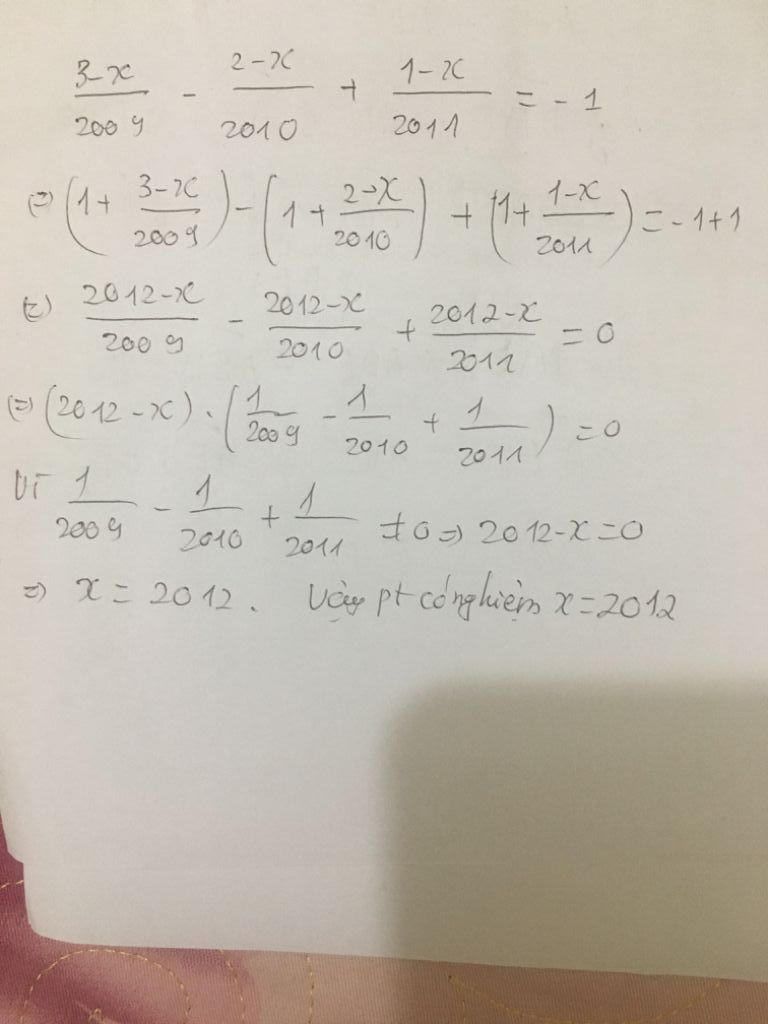 3-x/2009 - 2-x/2010 + 1-x/2011 = -1
(=) (1 + 3-x/2009) - (1 + 2-x/2010) + (1 + 1-x/2011) = -1+1
(=) 2012-x/2009 - 2012-x/2010 + 2012-x/2011 = 0
(=) (2012-x) . (1/2009 - 1/2010 + 1/2011) = 0
Vì 1/2009 - 1/2010 + 1/2011 ≠ 0 => 2012-x = 0
=> x = 2012. Vậy pt có nghiệm x = 2012